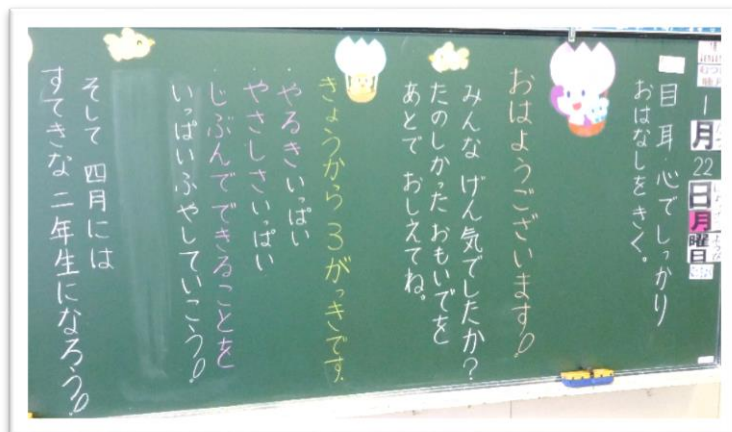 1月22日月曜日
目 耳 心でしっかり
おはなしをきく。
おはようございます!
みんな げん気でしたか?
たのしかった おもいでを
あとで おしえてね。
きょうから 3がっきです。
・やるきいっぱい
・やさしさいっぱい
・じぶんで できることを
いっぱいふやしていこう!
そして 四月には
すてきな 二年生になろう!